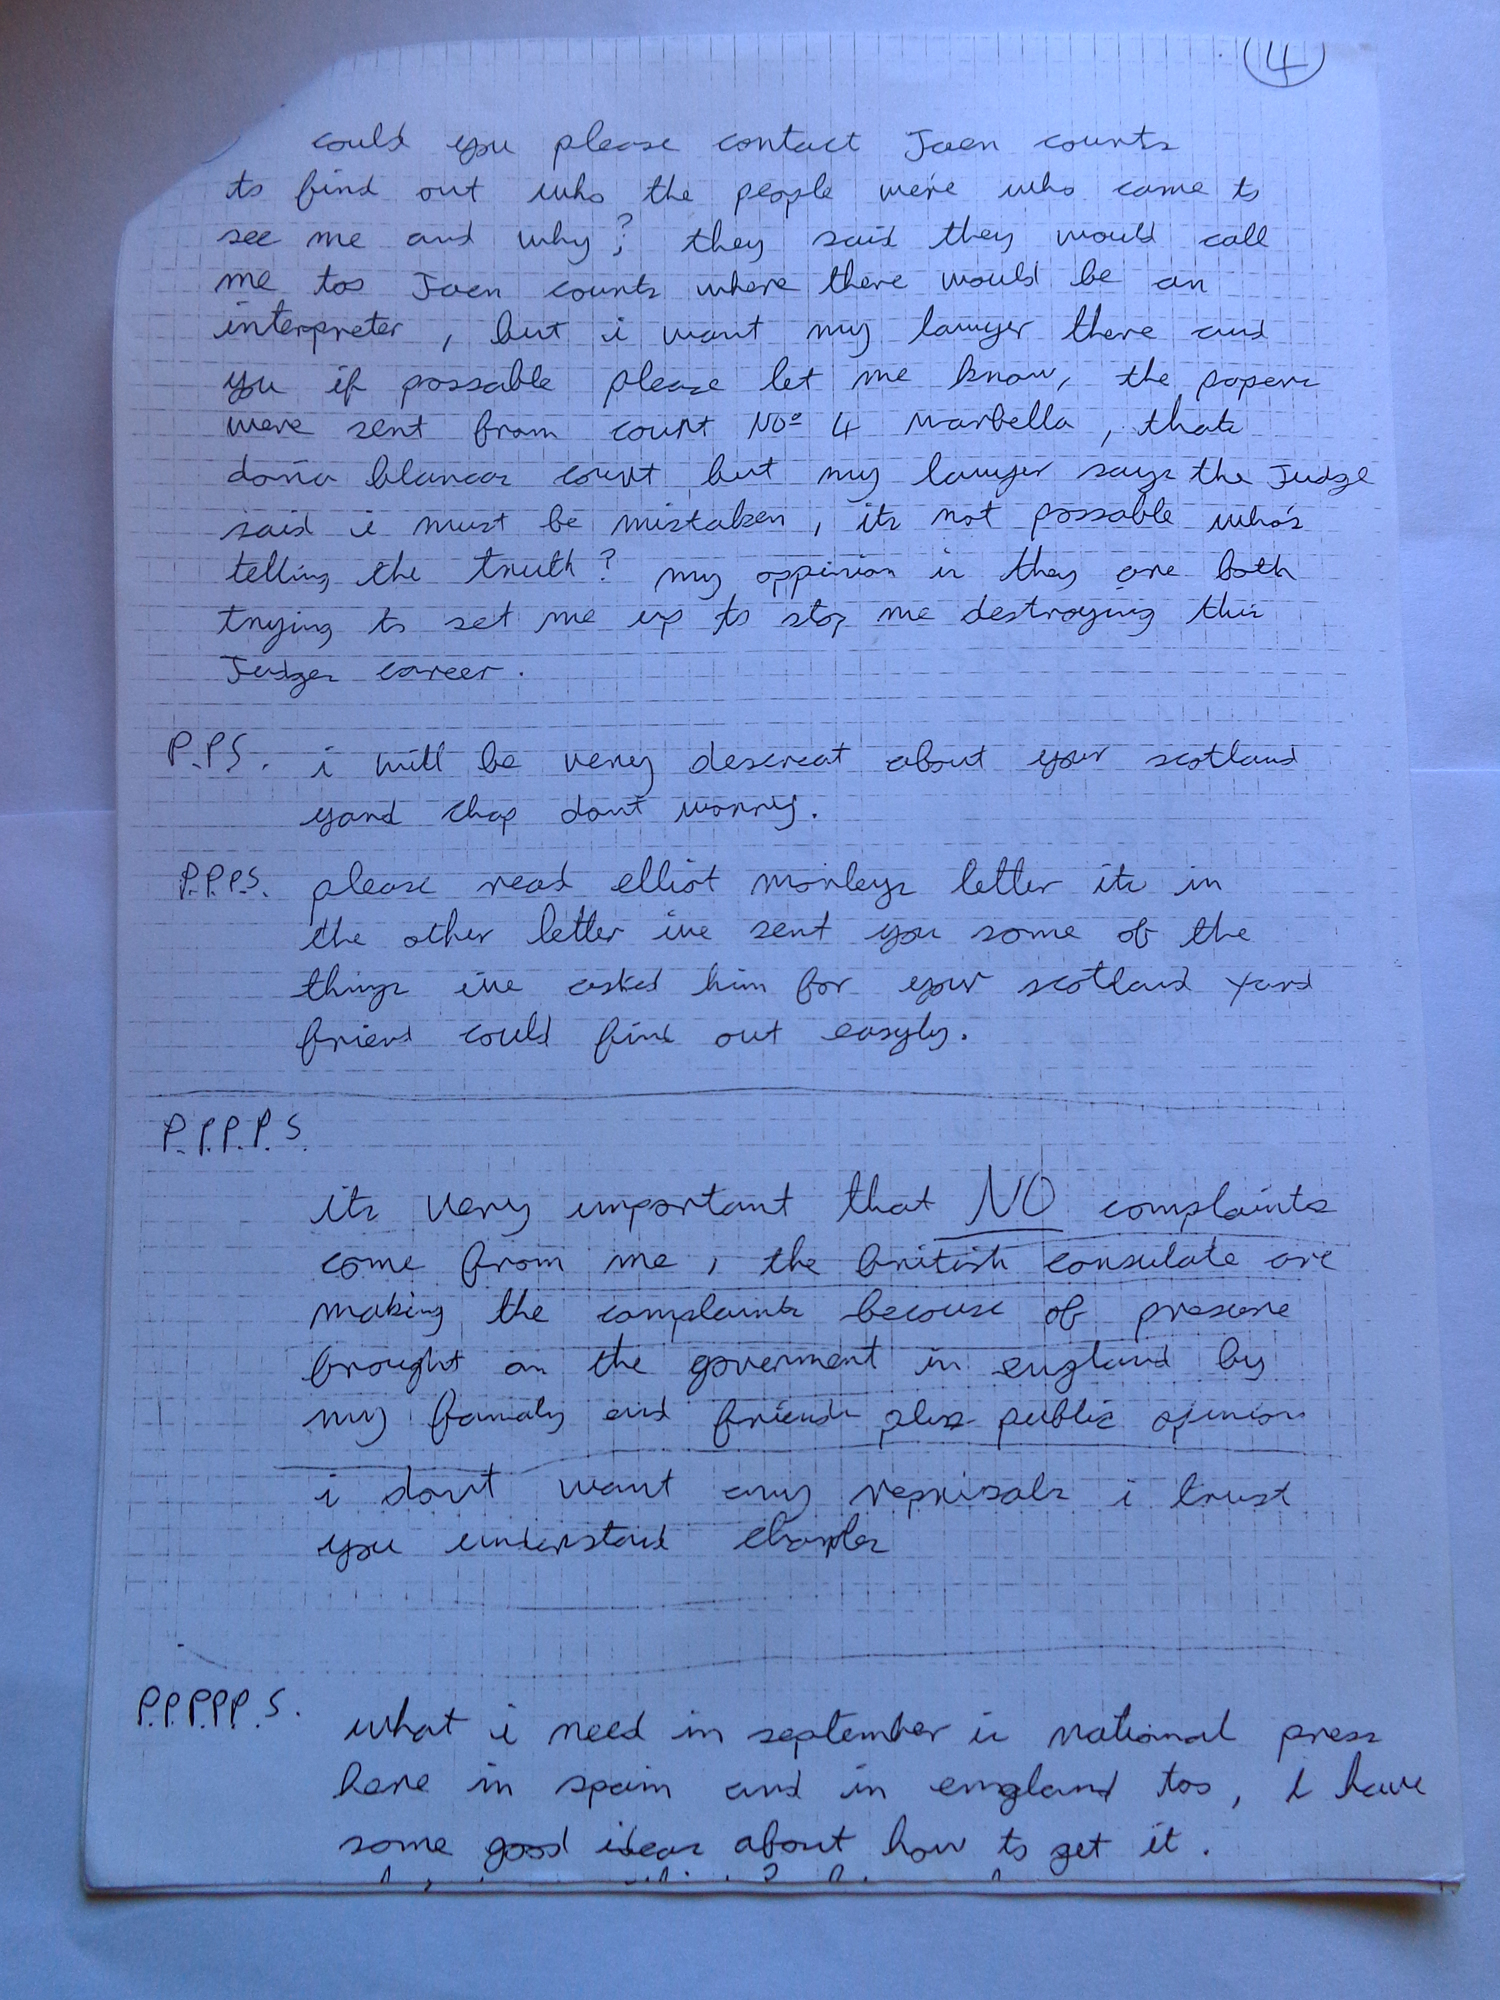 4
could you please contact Jaen courts
to find out who the people were who came to
see me and why? they said they would call
me too Jaen courts where there would be an
interpreter, but i want my lawyer there and
you if possable please let me know, the papers
were sent from court Nº 4 Marbella, thats
doña blancas court but my lawyer says the Judge
said i must be mistaken, its not possable who's
telling the truth? my oppinion is they are both
trying to set me up to stop me destroying this
Judges career.
P.PS. i will be very descreat about your scotland
yard chap dont worry.
P.P.P.S. please read elliot morleys letter its in
the other letter ive sent you some of the
things ive asked him for your scotland yard
friend could find out easyly.
P.P.P.P.S.
its very important that NO complaints
come from me, the british consulate are
making the complaints because of presure
brought on the goverment in england by
my famaly and friends plus public opinion
i dont want any reprisals i trust
you understand charles
P.P.P.P.P.S. what i need in september is national press
here in spain and in england too, i have
some good ideas about how to get it.